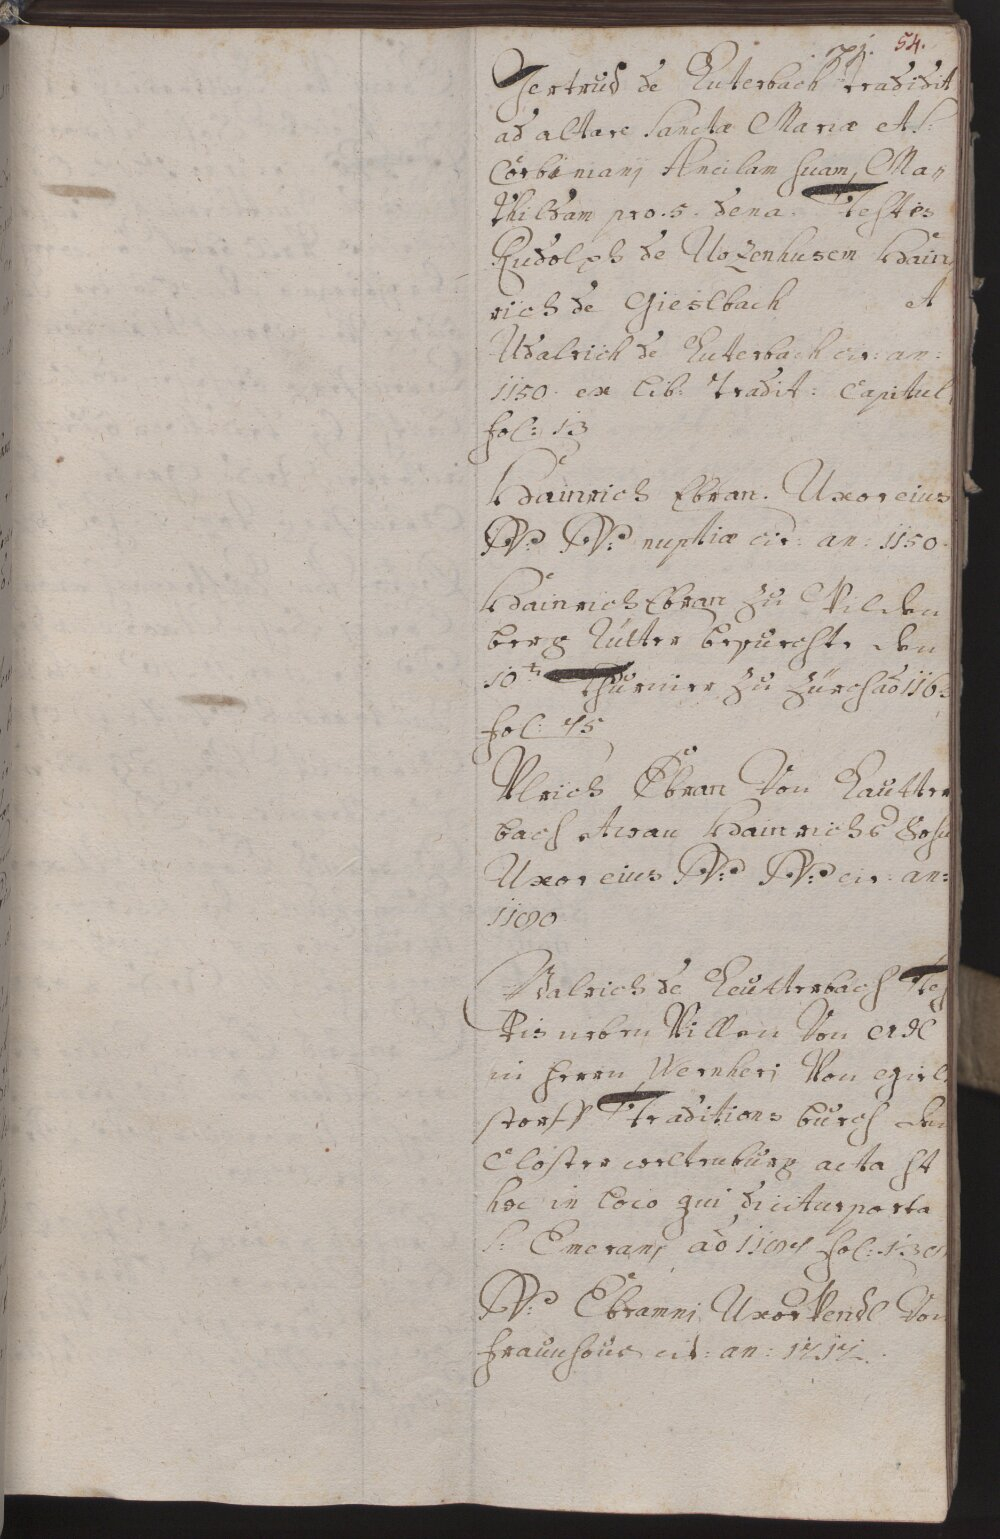 71. 54.
Gertrud de Luterbach tradidit
ad altare Sanctæ Mariæ et S:
Corbinianj Ancilam suam, Mac
thildam pro .5. dena. Testes
Rudolph de Uozenhusem Hain
rich de Gieselbach et
Udalrich de Luterbach cir: an:
1150. ex lib: tradit: Capitul
fol: 13
Hainrich Ebran. Uxor eius
N: N: nuptiæ cir: an: 1150.
Hainrich Ebran zu Wilden
berg Ritter besuechte den
10te Thurnier zu Zürch ao 116
fol: 75
Ulrich Ebran Von Lautter
bach etwan Hainrichs Sohn
Uxor eius N: N: cir: an:
1190
Udalrich de Leutterbach Tes
tis neben Villen Von Adl
in herrn Wernherj Von
storff Traditions durch den
Closter weltenburg acta st
hoc in loco qui dicitur porta
S: Emeranj ao fol: 130
N: Ebramnj Uxor Von
fraunhoue cir: an: 1212.